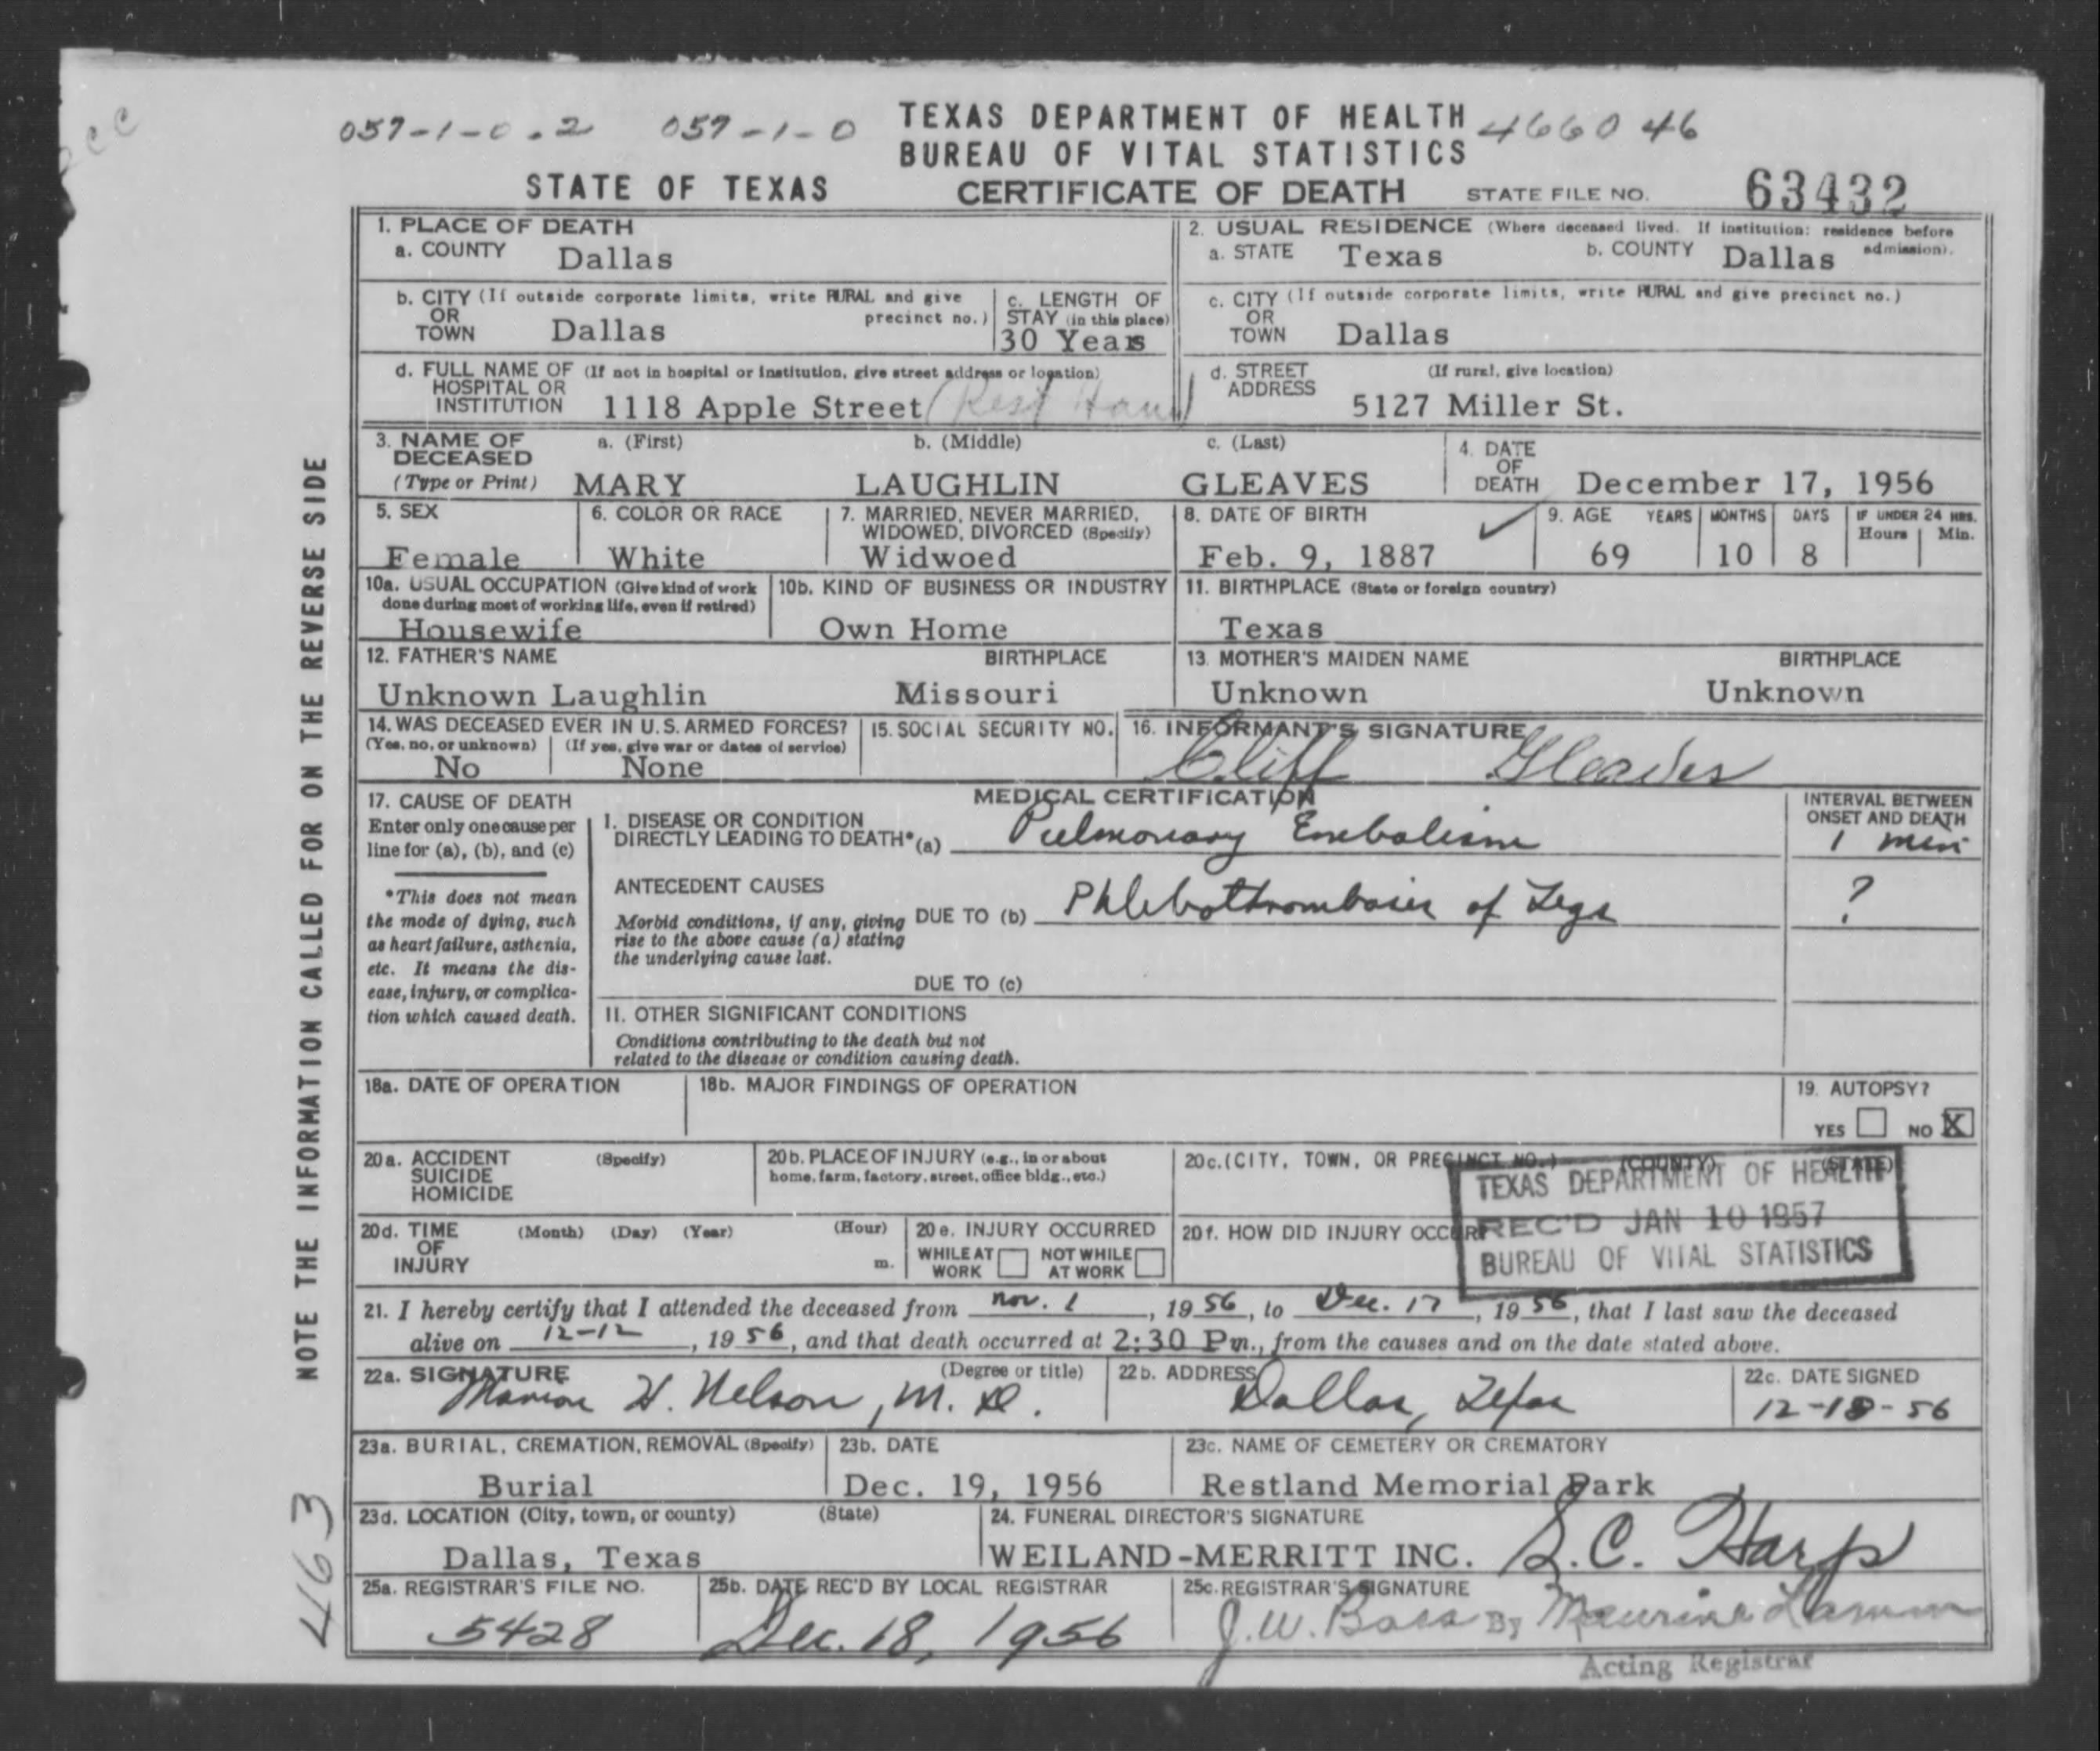 057-1-0.2 057-1-0 TEXAS DEPARTMENT OF HEALTH 4660 46
BUREAU OF VITAL STATISTICS
STATE OF TEXAS CERTIFICATE OF DEATH STATE FILE NO. 63432
1. PLACE OF DEATH
a. COUNTY Dallas
2. USUAL RESIDENCE (Where deceased lived. If institution: residence before admission).
a. STATE Texas b. COUNTY Dallas
b. CITY (If outside corporate limits, write RURAL and give precinct no.)
OR
TOWN Dallas
c. LENGTH OF
STAY (in this place)
30 Years
c. CITY (If outside corporate limits, write RURAL and give precinct no.)
OR
TOWN Dallas
d. FULL NAME OF (If not in hospital or institution, give street address or location)
HOSPITAL OR
INSTITUTION 1118 Apple Street (Rest
d. STREET (If rural, give location)
ADDRESS
5127 Miller St.
3. NAME OF a. (First) b. (Middle) c. (Last)
DECEASED
(Type or Print) MARY LAUGHLIN GLEAVES
4. DATE
OF
DEATH December 17, 1956
5. SEX
Female
6. COLOR OR RACE
White
7. MARRIED, NEVER MARRIED,
WIDOWED, DIVORCED (Specify)
Widwoed
8. DATE OF BIRTH
Feb. 9, 1887
9. AGE YEARS MONTHS DAYS IF UNDER 24 HRS.
Hours Min.
69 10 8
10a. USUAL OCCUPATION (Give kind of work
done during most of working life, even if retired)
Housewife
10b. KIND OF BUSINESS OR INDUSTRY
Own Home
11. BIRTHPLACE (State or foreign country)
Texas
12. FATHER'S NAME BIRTHPLACE
Unknown Laughlin Missouri
13. MOTHER'S MAIDEN NAME BIRTHPLACE
Unknown Unknown
14. WAS DECEASED EVER IN U.S. ARMED FORCES?
(Yes, no, or unknown) (If yes, give war or dates of service)
No None
15. SOCIAL SECURITY NO.
16. INFORMANT'S SIGNATURE
Cliff Gleaves
MEDICAL CERTIFICATION
17. CAUSE OF DEATH
Enter only one cause per
line for (a), (b), and (c)
*This does not mean
the mode of dying, such
as heart failure, asthenia,
etc. It means the dis-
ease, injury, or complica-
tion which caused death.
I. DISEASE OR CONDITION
DIRECTLY LEADING TO DEATH* (a) Pulmonary Embolism
ANTECEDENT CAUSES
Morbid conditions, if any, giving
rise to the above cause (a) stating
the underlying cause last.
DUE TO (b) Phlebothrombosis of Legs
DUE TO (c)
II. OTHER SIGNIFICANT CONDITIONS
Conditions contributing to the death but not
related to the disease or condition causing death.
INTERVAL BETWEEN
ONSET AND DEATH
1 min
?
18a. DATE OF OPERATION
18b. MAJOR FINDINGS OF OPERATION
19. AUTOPSY?
YES NO X
20a. ACCIDENT (Specify)
SUICIDE
HOMICIDE
20b. PLACE OF INJURY (e.g., in or about
home, farm, factory, street, office bldg., etc.)
20c. (CITY, TOWN, OR PRECINCT NO.) (COUNTY) (STATE)
20d. TIME (Month) (Day) (Year) (Hour)
OF
INJURY m.
20e. INJURY OCCURRED
WHILE AT WORK NOT WHILE AT WORK
20f. HOW DID INJURY OCCUR?
TEXAS DEPARTMENT OF HEALTH
REC'D JAN 10 1957
BUREAU OF VITAL STATISTICS
21. I hereby certify that I attended the deceased from Nov. 1, 1956, to Dec. 17, 1956, that I last saw the deceased
alive on 12-12, 1956, and that death occurred at 2:30 Pm., from the causes and on the date stated above.
22a. SIGNATURE (Degree or title)
Marion H. Nelson, M.D.
22b. ADDRESS
Dallas, Texas
22c. DATE SIGNED
12-18-56
23a. BURIAL, CREMATION, REMOVAL (Specify)
Burial
23b. DATE
Dec. 19, 1956
23c. NAME OF CEMETERY OR CREMATORY
Restland Memorial Park
23d. LOCATION (City, town, or county) (State)
Dallas, Texas
24. FUNERAL DIRECTOR'S SIGNATURE
WEILAND-MERRITT INC. S.C. Harp
25a. REGISTRAR'S FILE NO.
5428
25b. DATE REC'D BY LOCAL REGISTRAR
Dec. 18, 1956
25c. REGISTRAR'S SIGNATURE
J.W. Bass By Maurine Lamm
Acting Registrar
NOTE THE INFORMATION CALLED FOR ON THE REVERSE SIDE
463